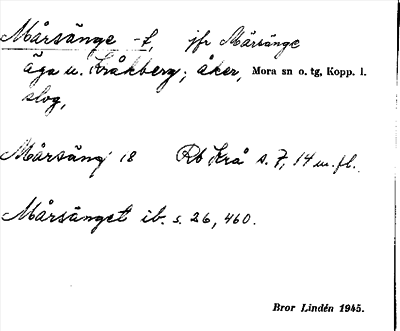 Mårsänge -t, jfr Mårsänge
äga u. Kråkberg; åker, Mora sn o. tg, Kopp. l.
slog,
Mårsäng 18 Rb Krå s. 7, 14 m. fl.
Mårsänget ib. s. 26, 460.
Bror Lindén 1945.